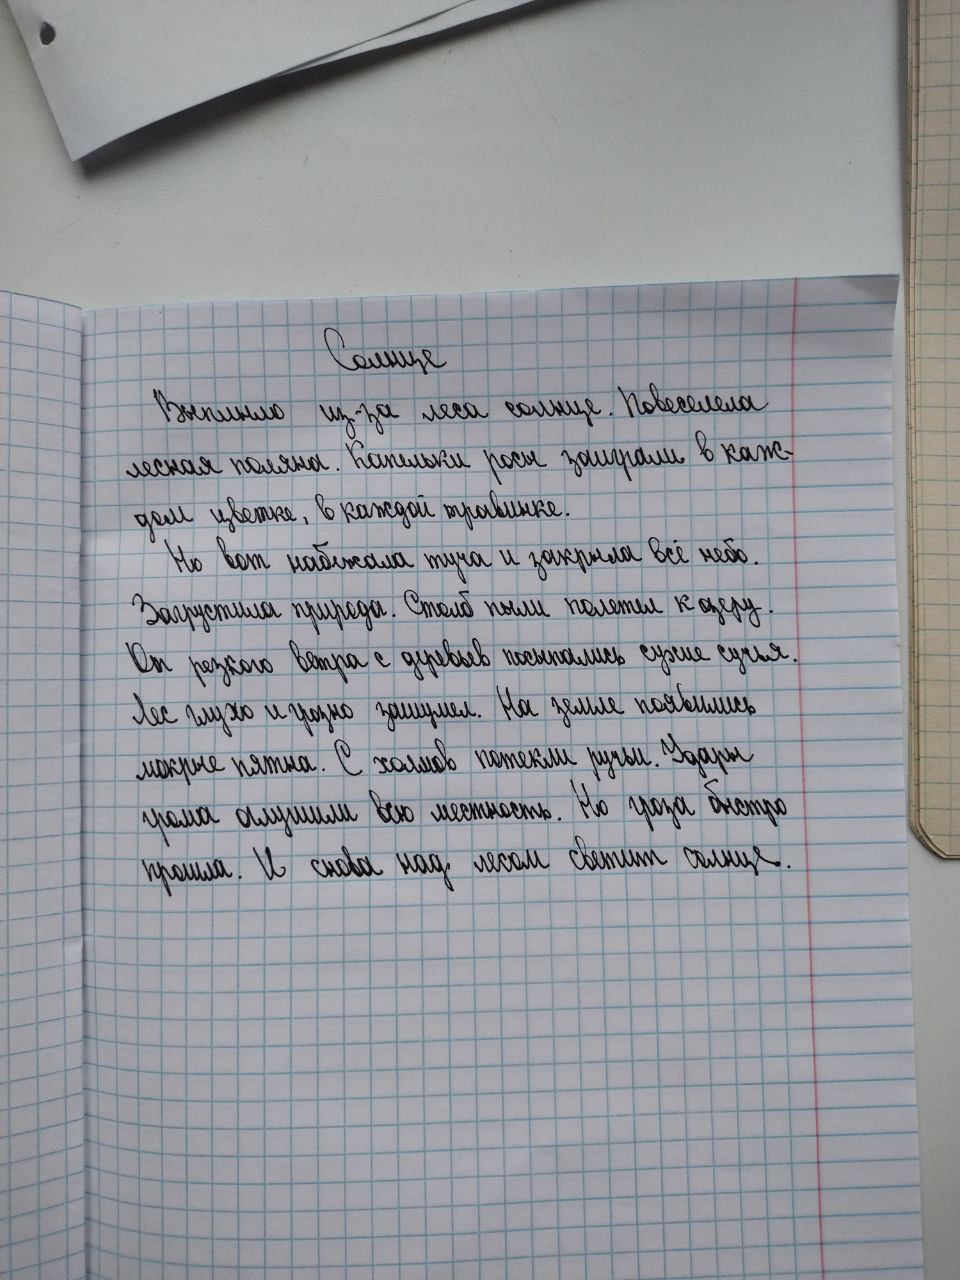 Солнце
Выплыло из-за леса солнце. Повеселела
лесная поляна. Капельки росы заиграли в каж-
дом цветке, в каждой травинке.
Но вот набежала туча и закрыла всё небо.
Загрустила природа. Столб пыли полетел к озеру.
От резкого ветра с деревьев посыпались сухие сучья.
Лес глухо и грозно зашумел. На земле появились
мокрые пятна. С холмов потекли ручьи. Удары
грома оглушили всю местность. Но гроза быстро
прошла. И снова над лесом светит солнце.